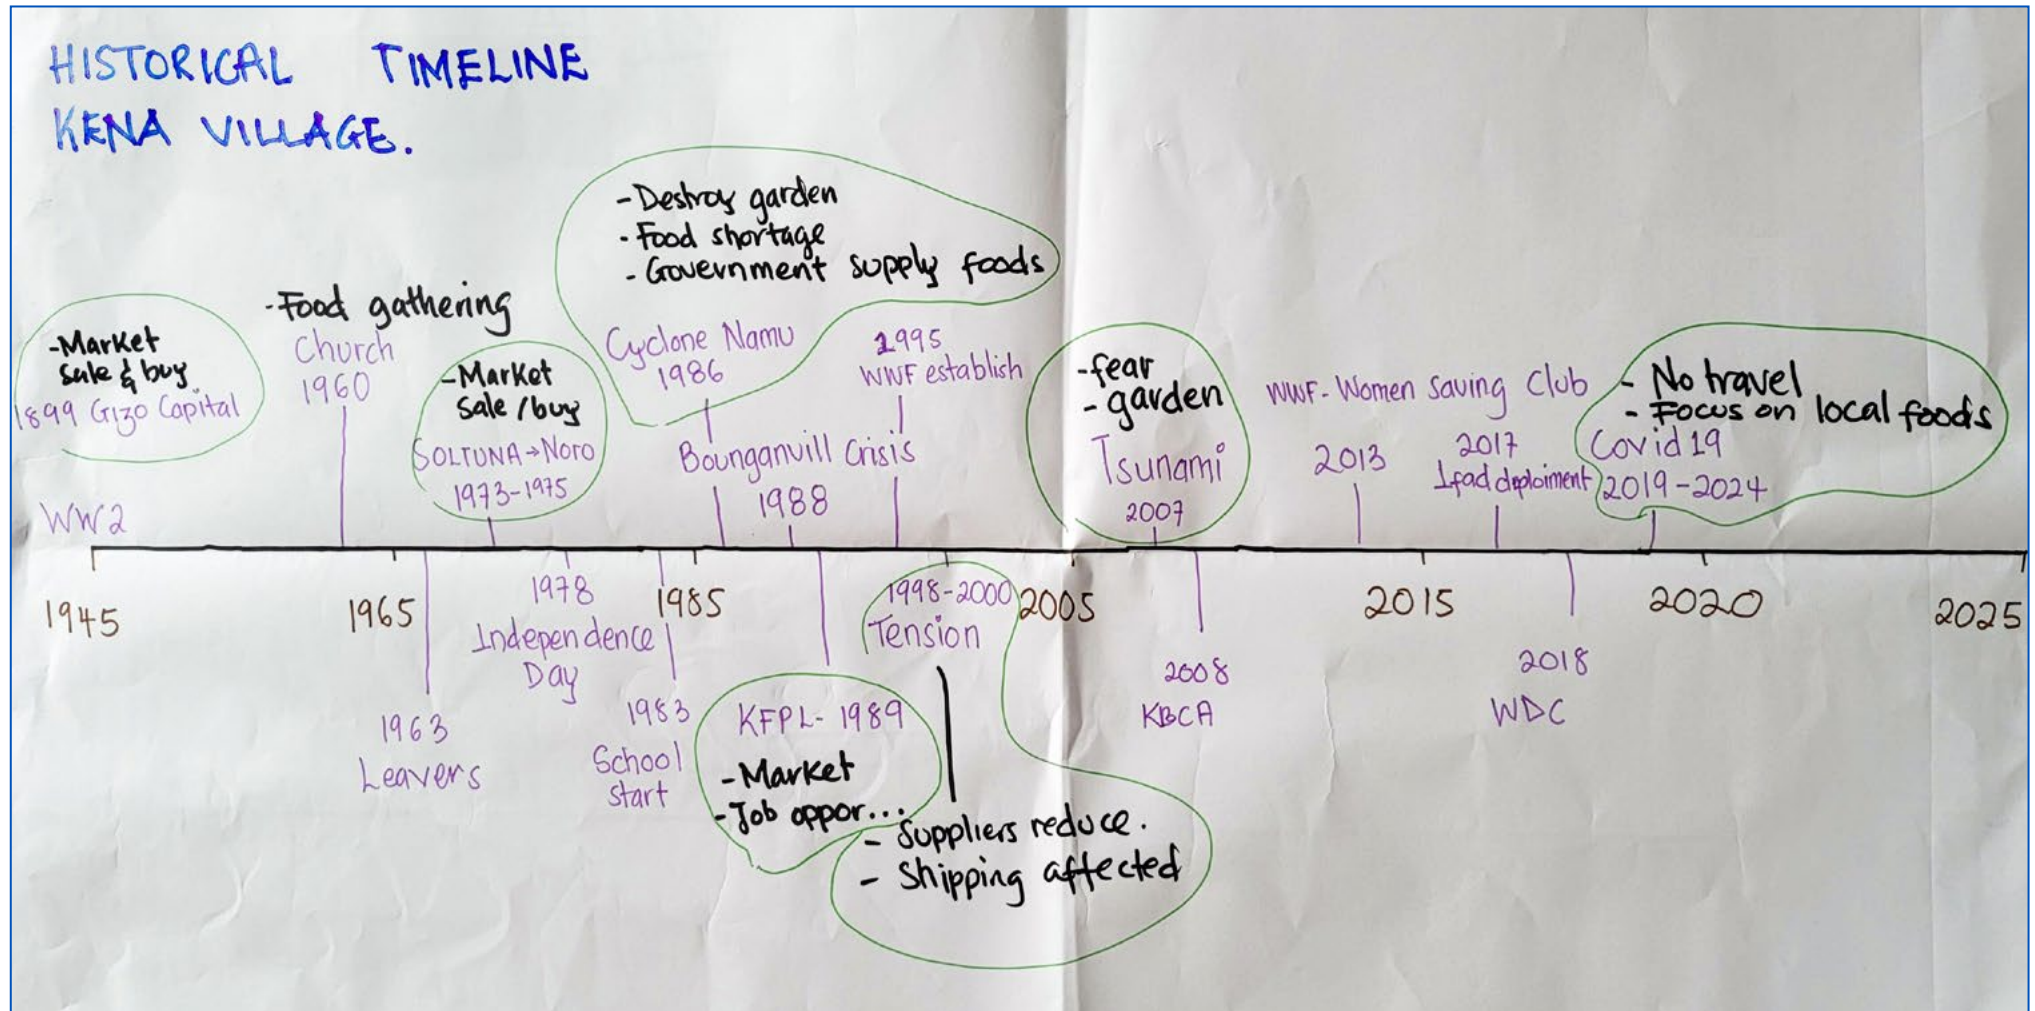 HISTORICAL TIMELINE
KENA VILLAGE.
-Market
sale & buy
1899 Gizo Capital
WW2
-Food gathering
Church
1960
-Market
Sale / buy
SOLTUNA→Noro
1973-1975
-Destroy garden
-Food shortage
-Government supply foods
Cyclone Namu
1986
1995
WWF establish
Bounganvill Crisis
1988
-fear
-garden
Tsunami
2007
WWF-Women Saving Club
2013
2017
Ifad deploiment
- No travel
- Focus on local foods
Covid 19
2019-2024
1945
1965
1985
2005
2015
2020
2025
1963
Leavers
1978
Independence
Day
1983
School
start
KFPL- 1989
-Market
-Job oppor...
1998-2000
Tension
- Suppliers reduce.
- Shipping affected
2008
KBCA
2018
WDC